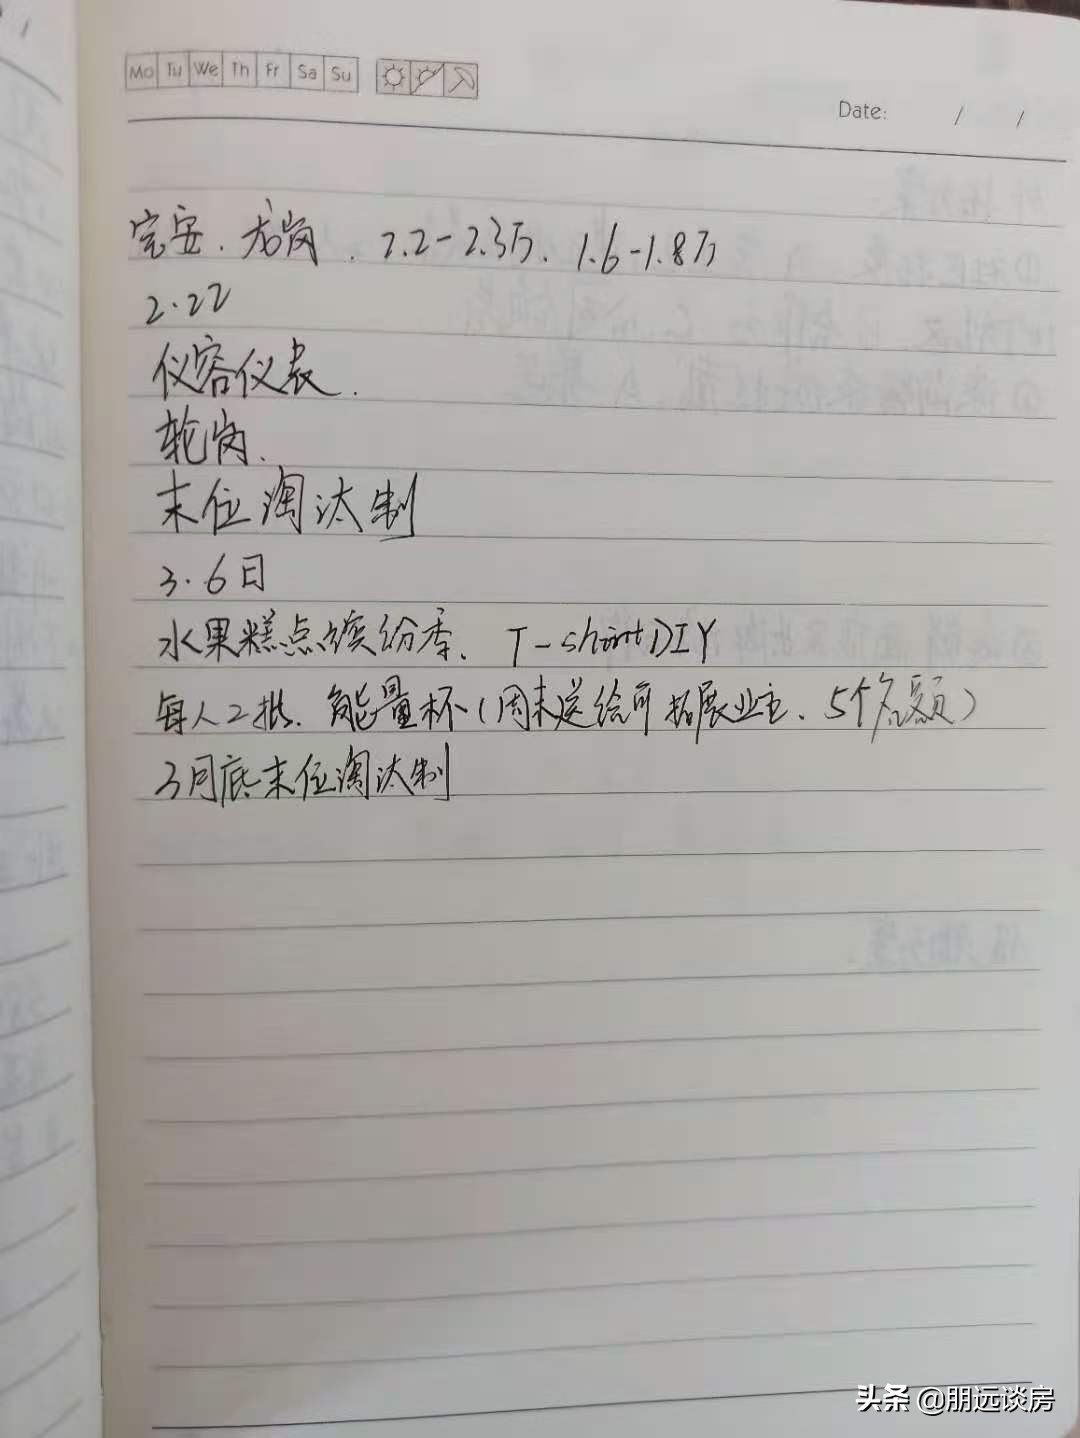 Mo Tu We Th Fr Sa Su
Date: / /
宝安、龙岗、2.2-2.3万、1.6-1.8万
2.22
仪容仪表.
轮岗.
末位淘汰制
3.6日
水果糕点缤纷季、T-shirtDIY
每人2批、能量杯(周末送给可拓展业主、5个名额)
3月底末位淘汰制
头条 @朋远谈房